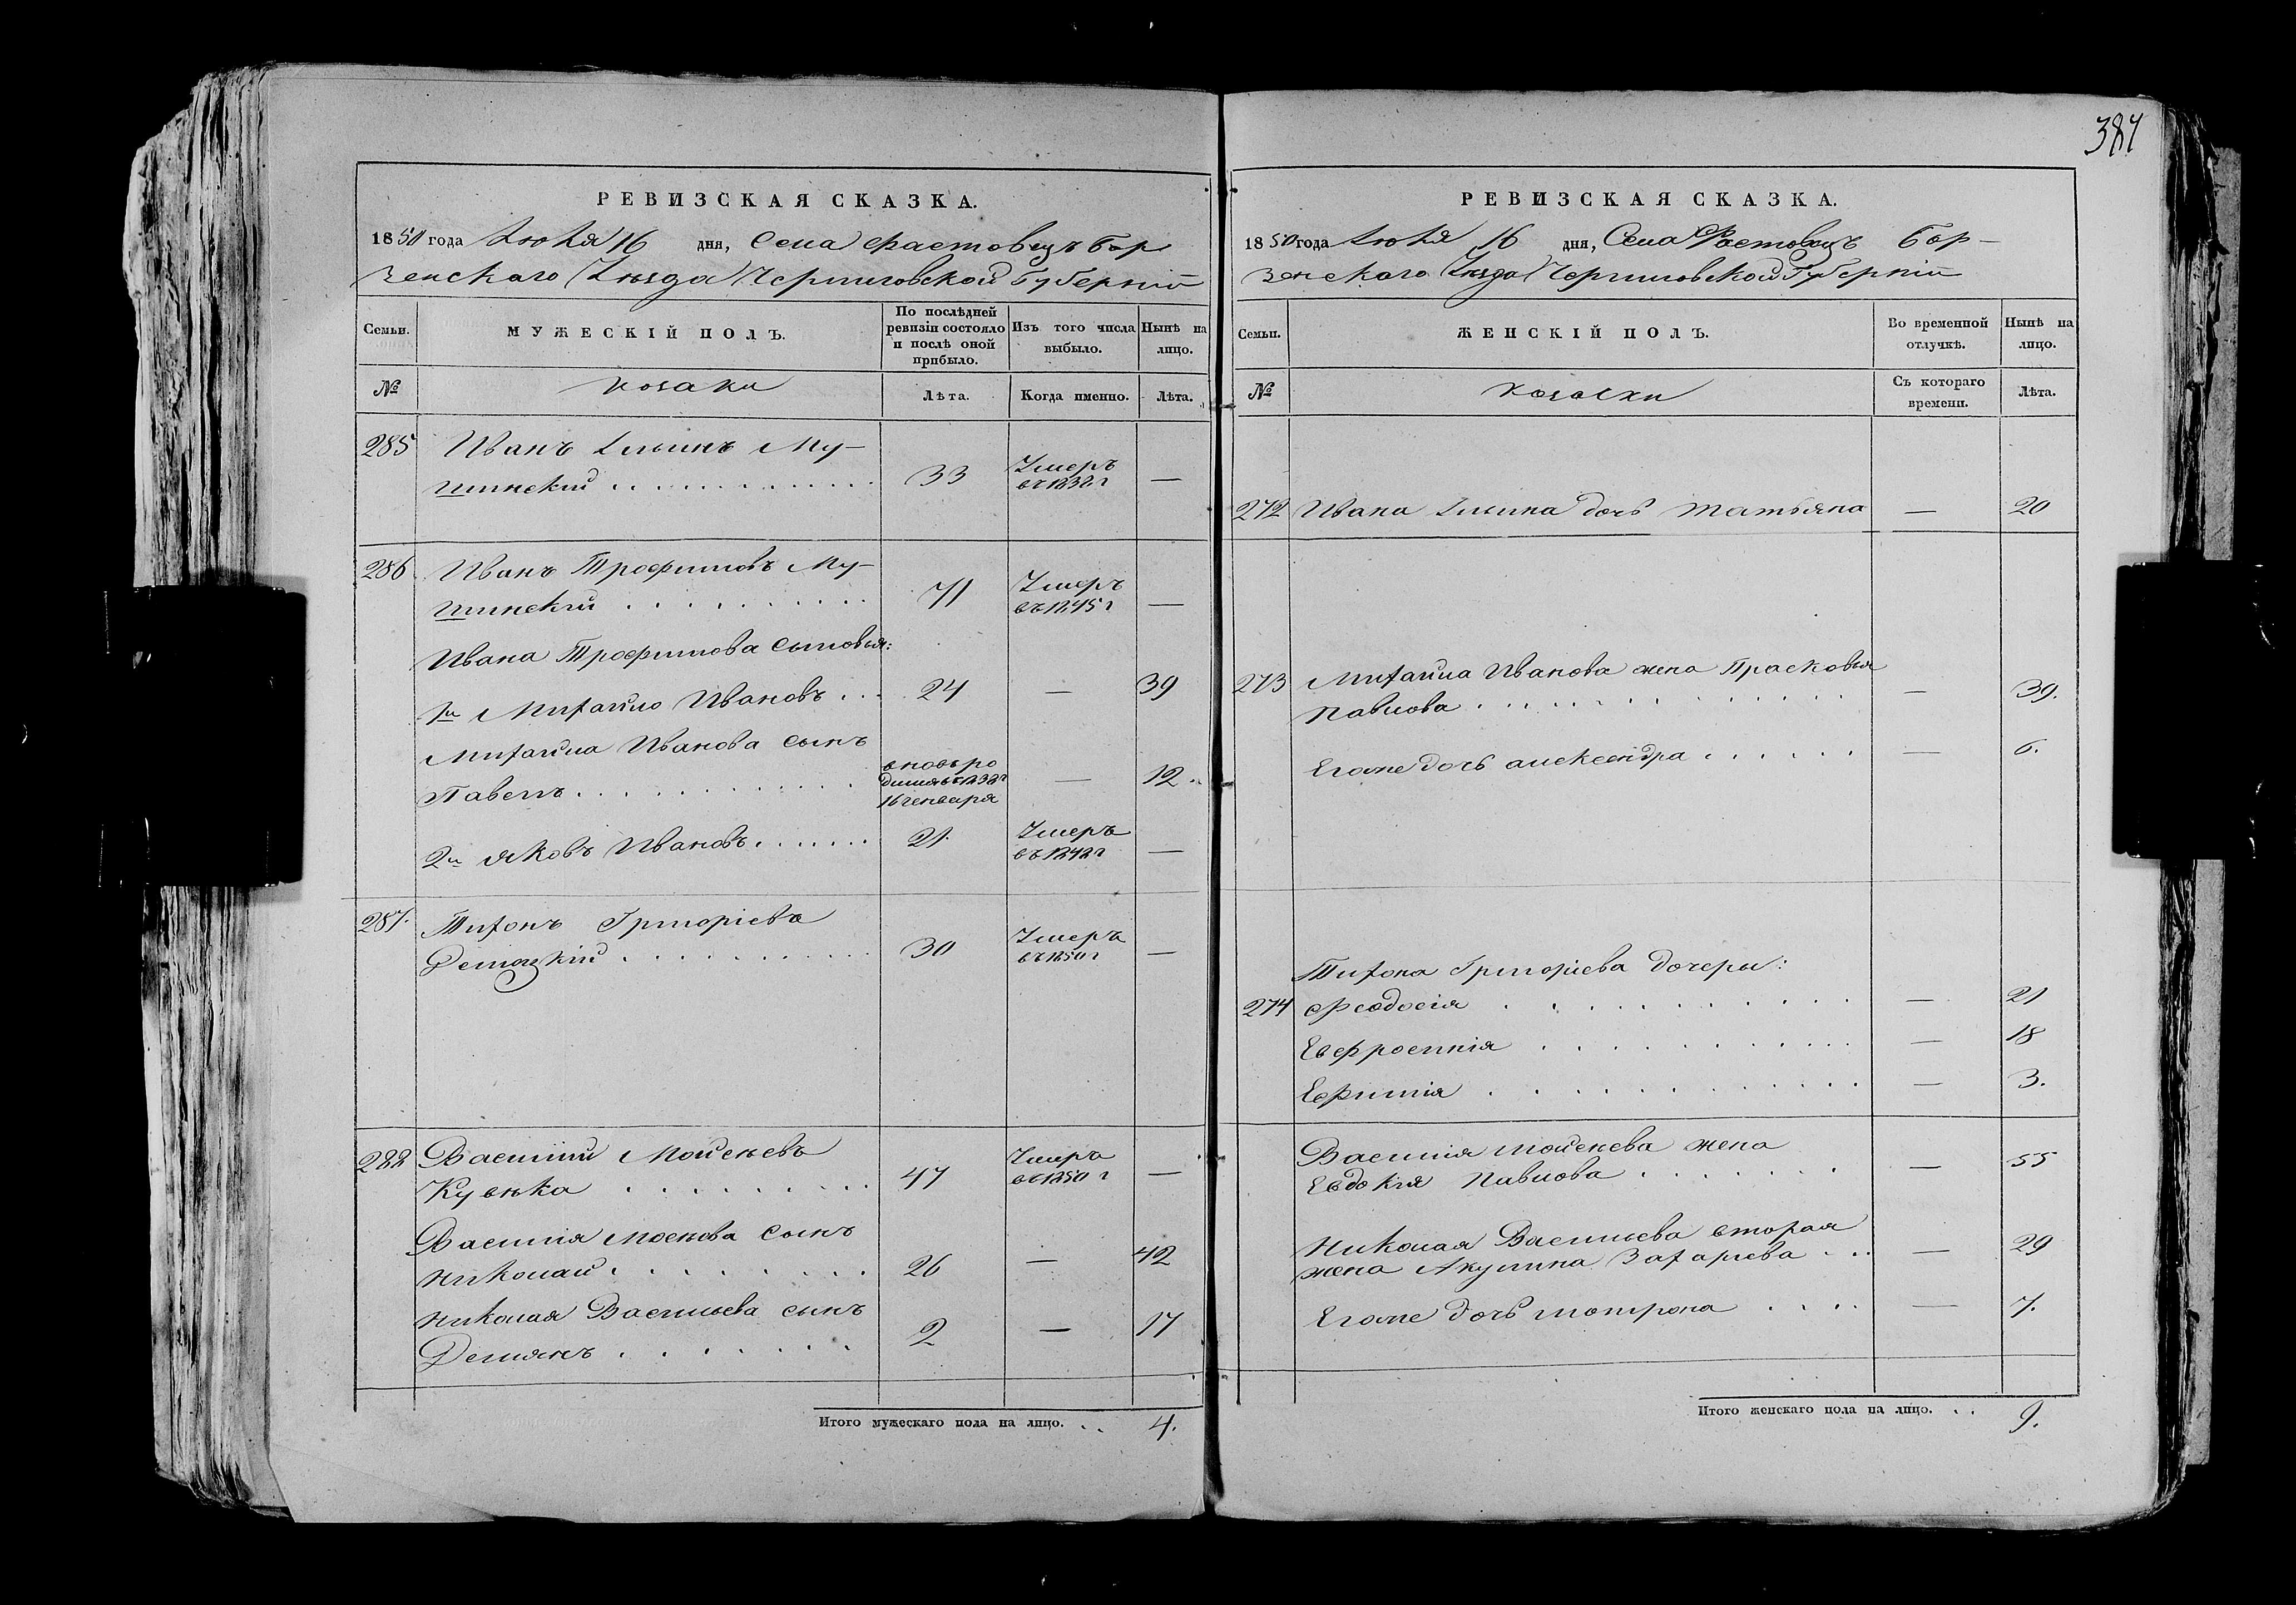 387
РЕВИЗСКАЯ СКАЗКА.
1850 года Июля 16 дня, Села Фастовецъ Бор
зенскаго Уѣзда Черниговской Губерніи
Семьи. МУЖЕСКІЙ ПОЛЪ. По послѣдней ревизіи состояло и послѣ оной прибыло. Изъ того числа выбыло. Нынѣ на лицо.
№ козаки Лѣта. Когда именно. Лѣта.
285 Иванъ Ильинъ Му-
шинскій 33 Умеръ въ 1838 г —
286 Иванъ Трофимовъ Му-
шинскій 71 Умеръ въ 1845 г —
Ивана Трофимова сыновья:
1й Михайло Ивановъ 24 — 39
Михайла Иванова сынъ
Павелъ вновь ро
дился въ 1838 г — 12
16 генваря
2й Яковъ Ивановъ 21 Умеръ въ 1842 г —
287. Тихонъ Григоріевъ
30 Умеръ въ 1850 г —
288 Василій Мойсѣевъ
Кувѣка 47 Умеръ въ 1850 г —
Василія Мосѣева сынъ
Николай 26 — 42
Николая Васильева сынъ
Демянъ 2 — 17
Итого мужескаго пола на лицо. 4.
РЕВИЗСКАЯ СКАЗКА.
1850 года Июля 16 дня, Села Фастовецъ Бор-
зенскаго Уѣзда Черниговской Губерніи
Семьи. ЖЕНСКІЙ ПОЛЪ. Во временной отлучкѣ. Нынѣ на лицо.
№ козачки Съ котораго времени. Лѣта.
272 Ивана Ильина дочь Татьяна — 20
273 Михайла Иванова жена Прасковья
Павлова — 39.
Егоже дочь александра — 6.
Тихона Григоріева дочеры:
274 Феодосія — 21
Евфросинія — 18
Ефимія — 3.
Василія мойсѣева жена
Евдокія Павлова — 55
Николая Васильева вторая
жена Акулина Захаріева — 29
Егоже дочь мотрона — 7.
Итого женскаго пола на лицо. 9.